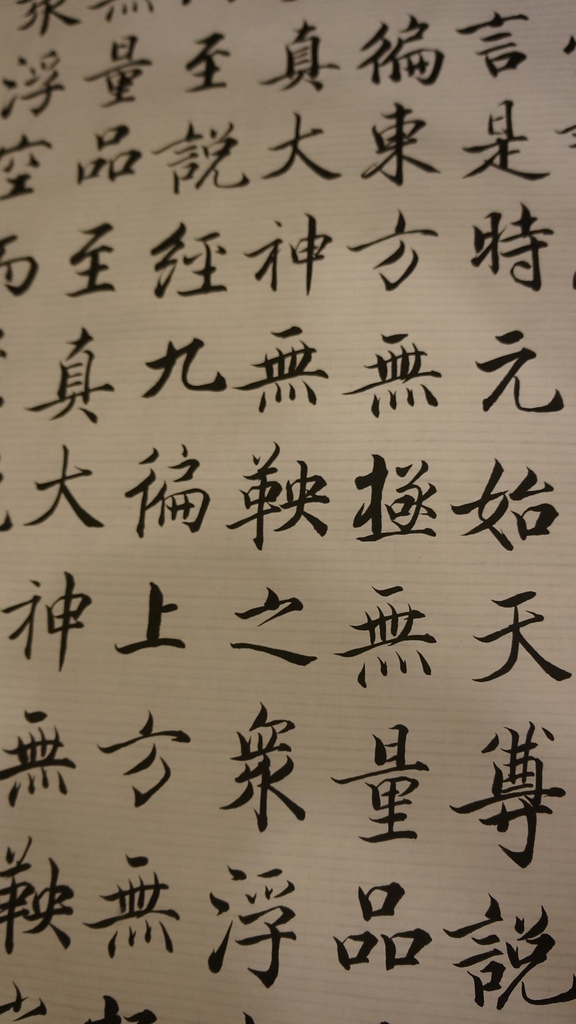 言是時元始天尊說
徧東方無極無量品
真大神無鞅之衆浮
至說經九徧上方無
無量品至真大神無鞅
衆浮空而